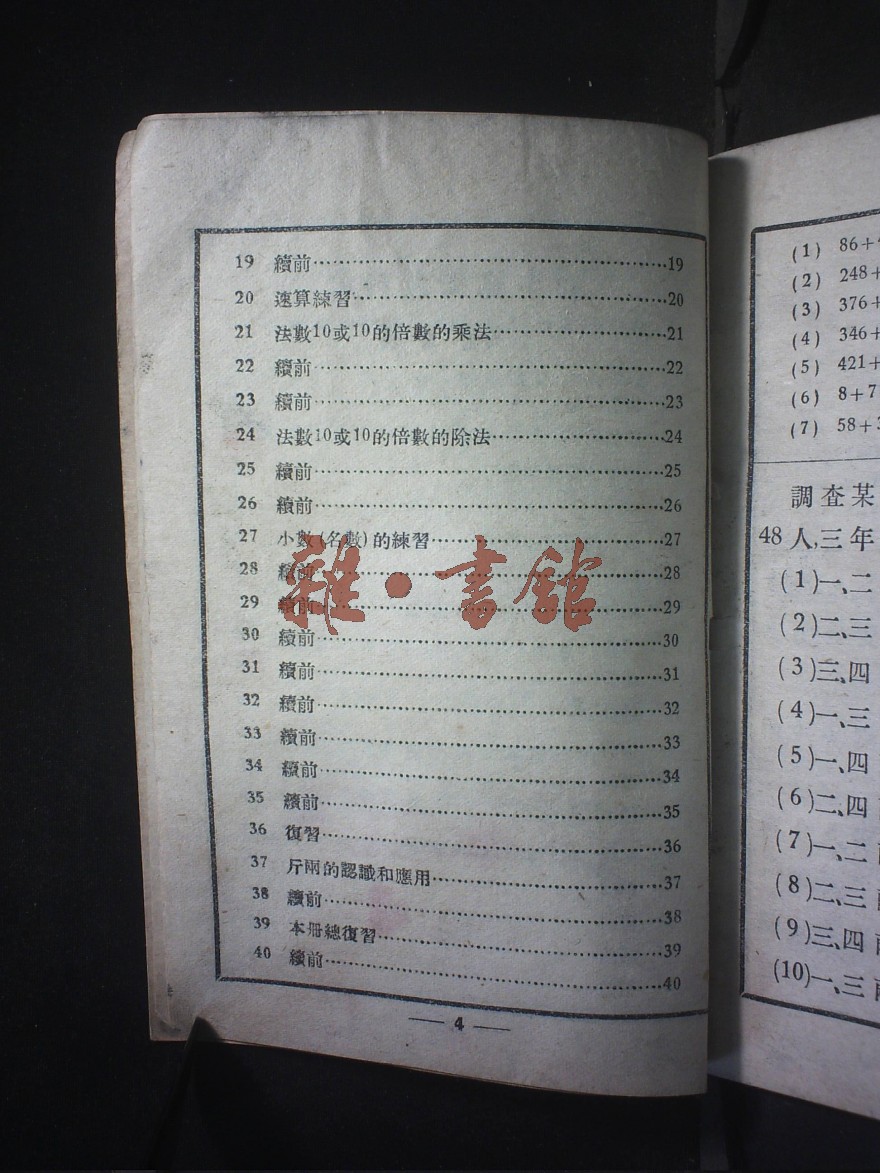 19 續前……19
20 速算練習……20
21 法數10或10的倍數的乘法……21
22 續前……22
23 續前……23
24 法數10或10的倍數的除法……24
25 續前……25
26 續前……26
27 小數(名數)的練習……27
28 續前……28
29 續前……29
30 續前……30
31 續前……31
32 續前……32
33 續前……33
34 續前……34
35 續前……35
36 復習……36
37 斤兩的認識和應用……37
38 續前……38
39 本册總復習……39
40 續前……40
— 4 —
雜·書館
(1) 86+
(2) 248+
(3) 376+
(4) 346+
(5) 421+
(6) 8+7
(7) 58+
調查某
48人,三年
(1)一、二
(2)二、三
(3)三、四
(4)一、三
(5)一、四
(6)二、四
(7)一、二
(8)二、三
(9)三、四
(10)一、三